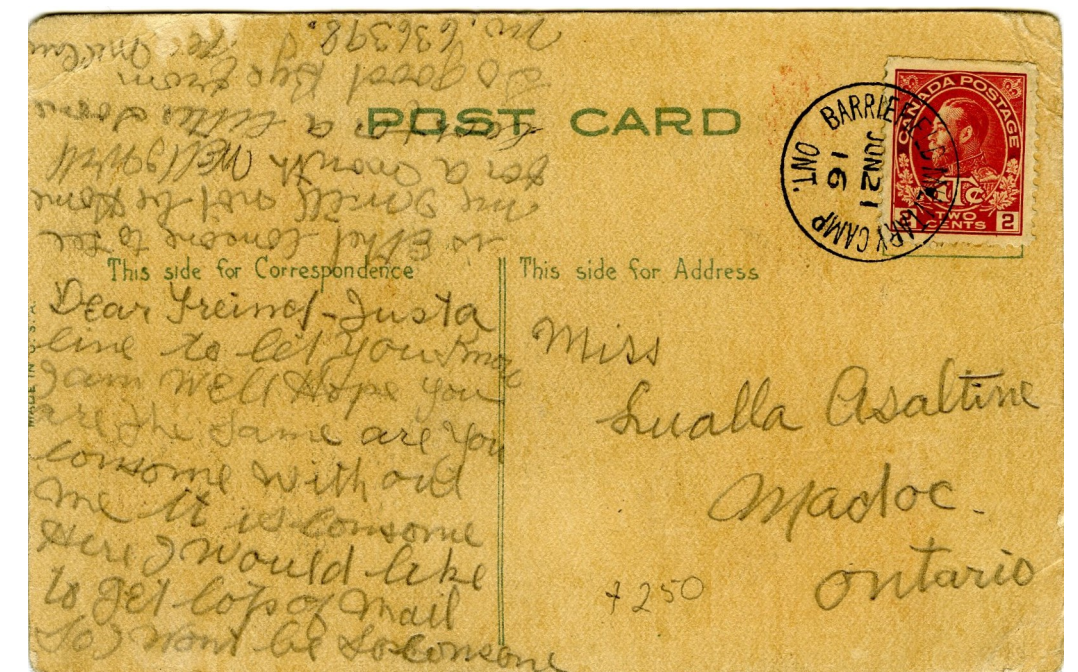 POST CARD
BARRIEFIELD MILITARY CAMP. ONT.
JUN 21
16
CANADA POSTAGE
1Tc
2 TWO CENTS 2
This side for Correspondence
This side for Address
MADE IN U.S.A.
Dear Freind-Just a
line to let you Know
I am Well Hope you
are the same are you
lonsome without
me it is lonsome
Here I would like
to get lots of Mail
So I wont be so lonsome
is Ethel lonsome to see
me I will not be Home
for a month Well I will
a
so good Bye from
No. 636398.
Miss
Lualla Asaltine
Madoc.
Ontario
+250